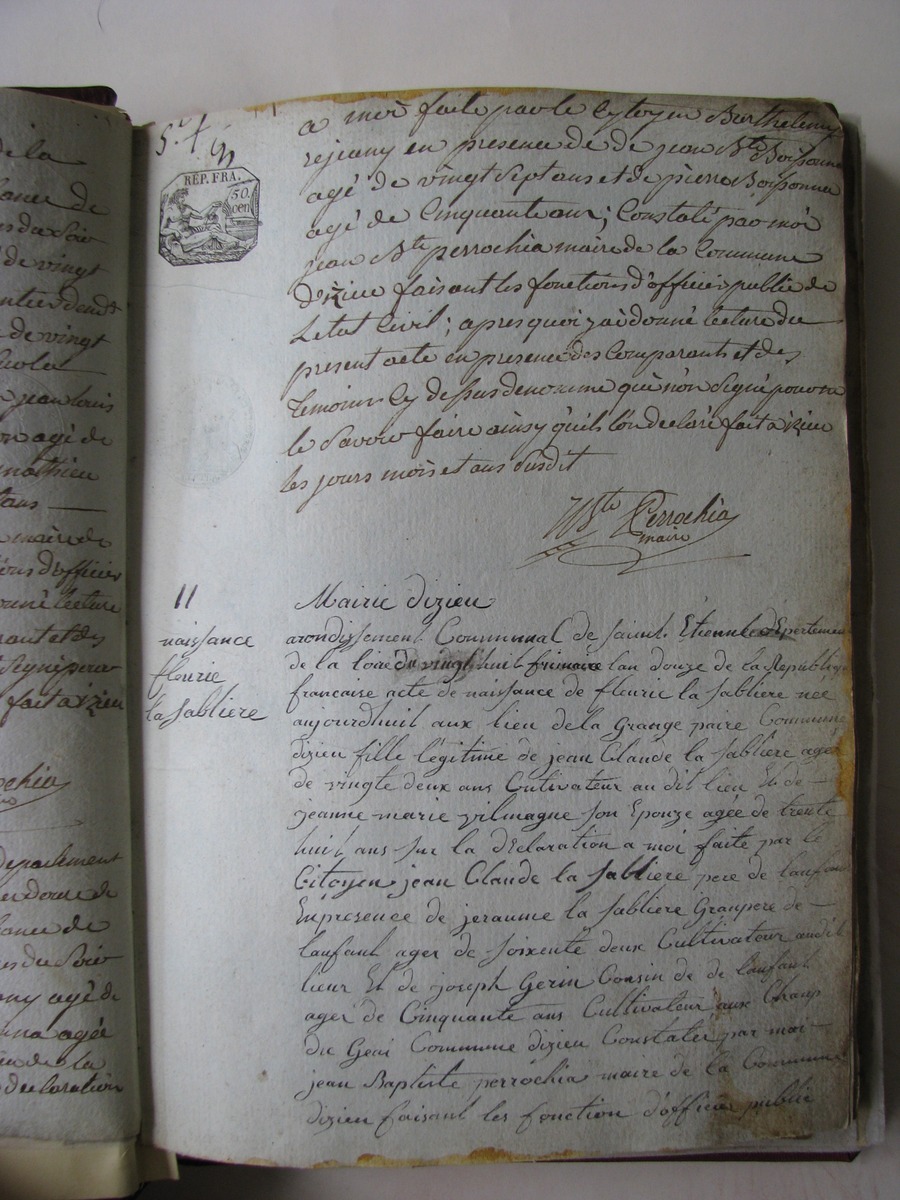 de la
de vingt
de vingt
jean louis
agé de
mathieu
ans
maire de
lecture
fait a izieu
declaration
REP. FRA.
50.
cen
a moi faite par le Cytoyen Barthelemy
rejeany en presence de de jean Bte Boissonna
agé de vingt Sept ans et de pierre Boissonnna
agé de Cinquante ans ; Constaté par moi
jean Bte perrochia maire de la Commune
d'izieu faisant les fonctions d'officier public de
Letat Civil ; apres quoi j'ai donné lecture du
present acte en presence des Comparants et des
Temoins Cy dessus denomme qui n'on Signé pour ne
le Savoir faire ainsy qu'ils l'on declaré fait a izieu
les jours mois et ans Susdit
JBte Perrochia
maire
11
naissance
fleurie
la Sabliere
Mairie dizieu
arondissement Communal de Saint Etienne departement
de la loire du vingt huit frimaire lan douze de la Republique
francaise acte de naissance de fleurie la Sabliere neé
aujourdhuit aux lieu de la Grange paire Commune
dizieu fille légitime de jean Claude la Sabliere ager
de vingte deux ans Cultivateur au dit lieu Et de
jeanne marie vilmagne Son Epouze agée de trente
huit ans Sur la dEclaration a moi faite par le
Citoyen jean Claude la Sabliere pere de lanfant
Enpresence de jeraume la Sabliere Granpere de
lanfant ager de Soixente deux Cultivateur audit
lieux Et de joseph Gerin Cousin de de lanfant
ager de Cinquante ans Cultivateur aux Champ
du Geai Commune dizieu Constater par moi
jean Baptiste perrochia maire de la Commune
dizieu faisant les fonction d'officier public